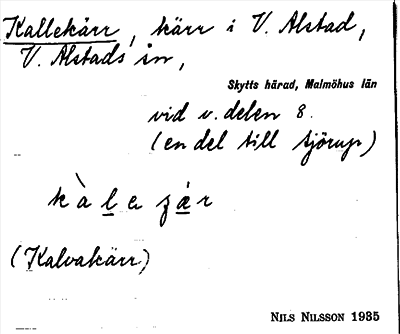 Kallekärr, kärr i V. Alstad,
V. Alstads sn,
Skytts härad, Malmöhus län
vid v. delen 8.
(en del till Sjörup)
kàle zár
(Kalvakärr)
NILS NILSSON 1935